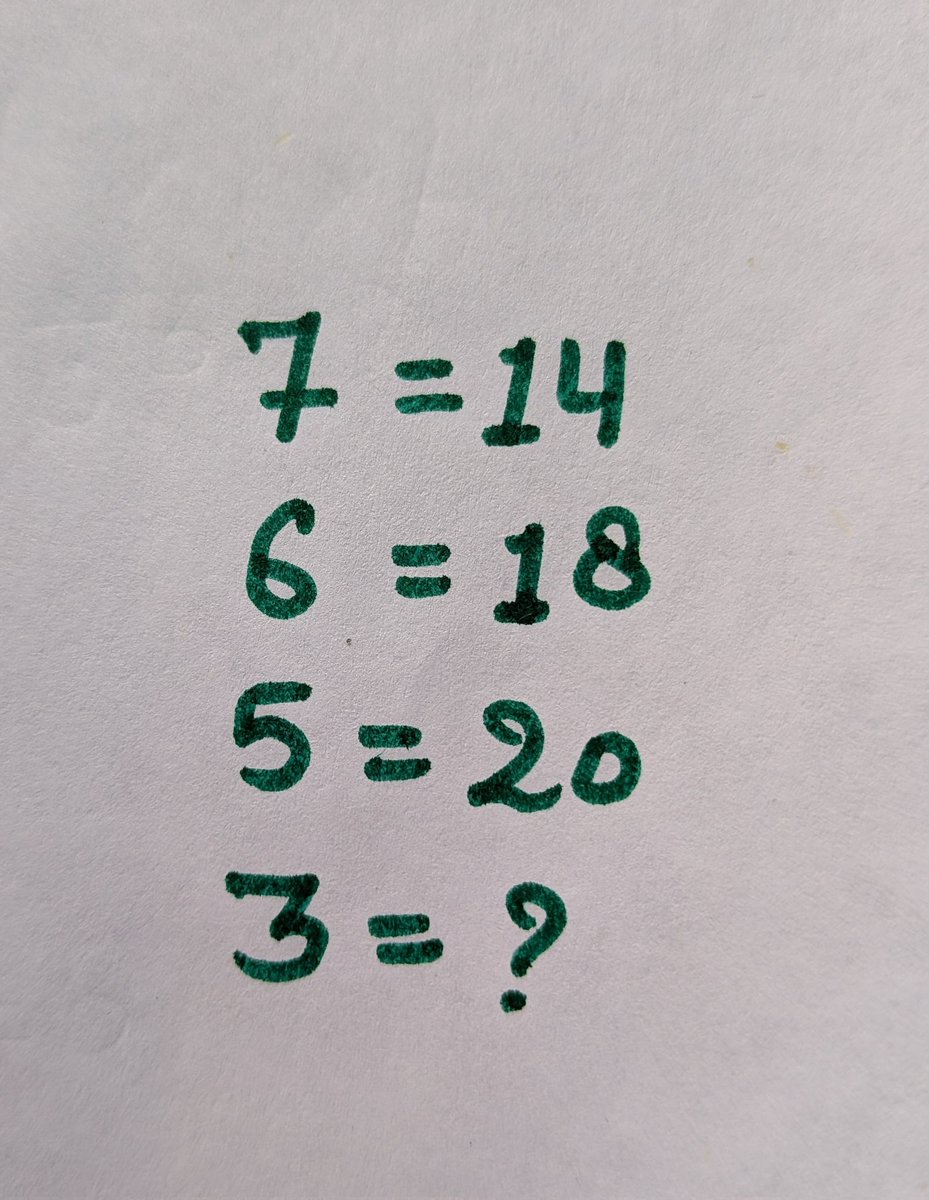 7 = 14
6 = 18
5 = 20
3 = ?